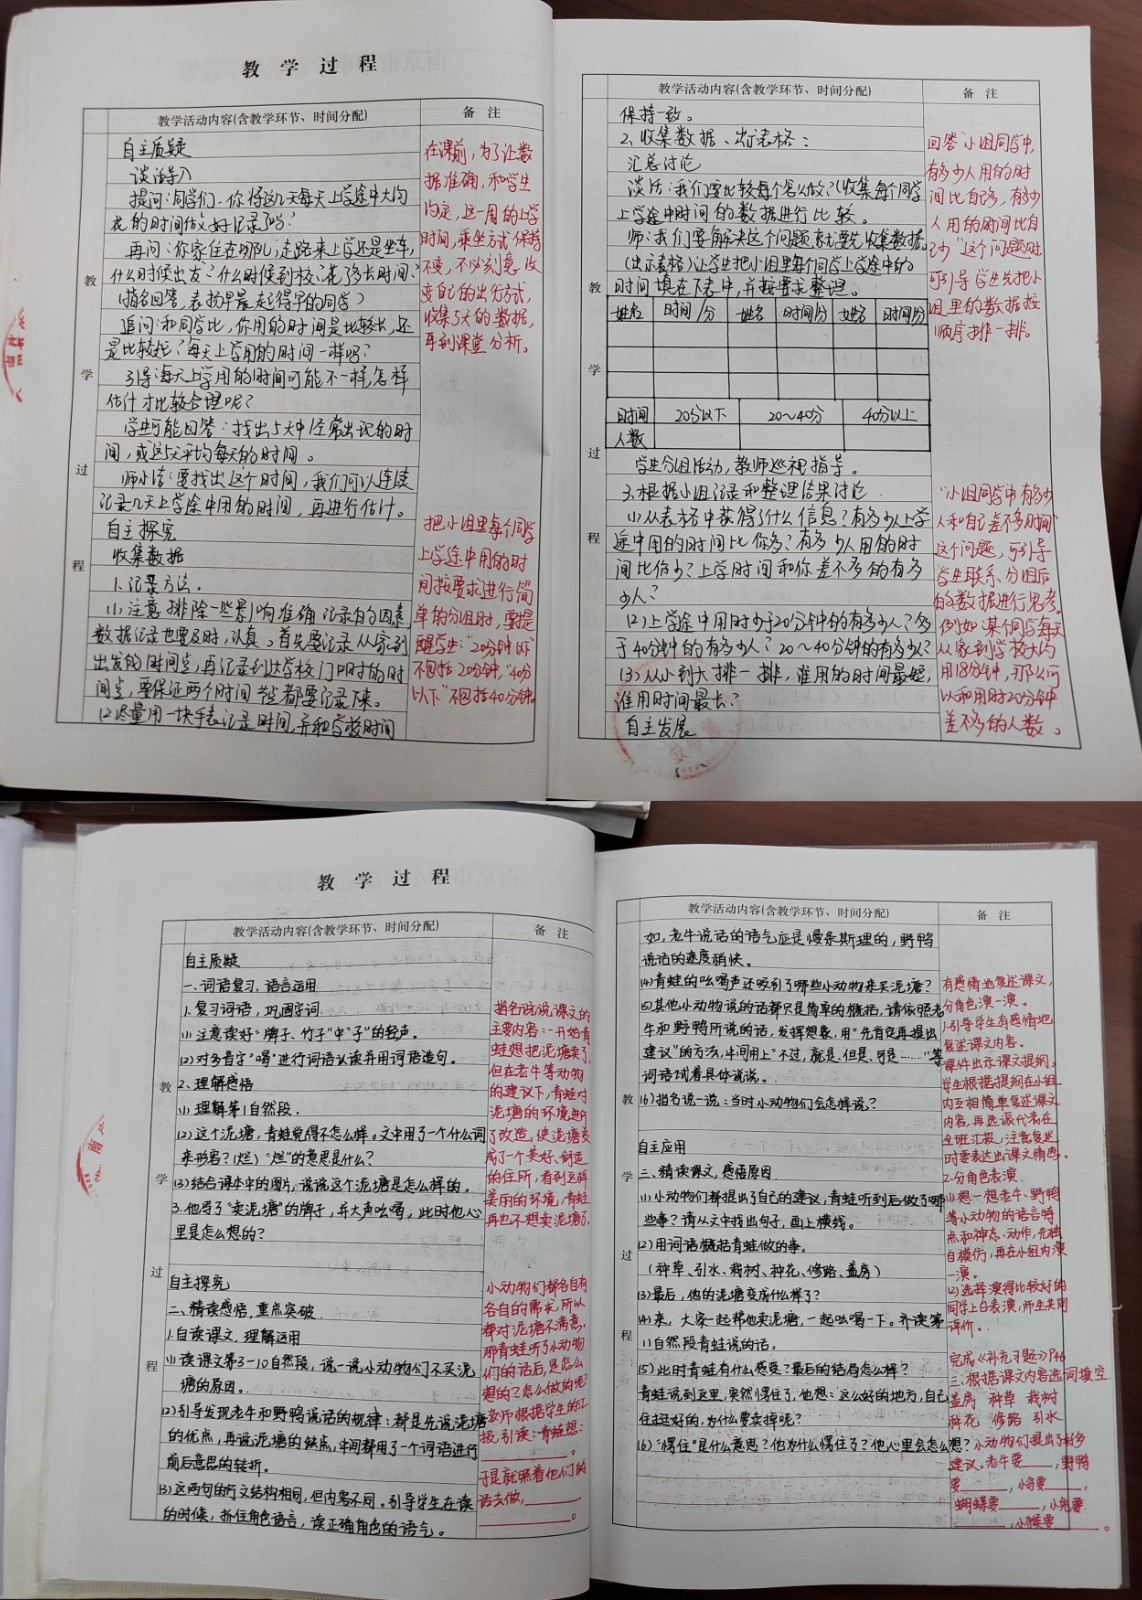 教学过程
教学活动内容(含教学环节、时间分配)
备注
教学过程
自主质疑
谈话导入
提问:同学们,你将这几天每天上学途中大约
花的时间做好记录了吗?
再问:你家住在哪儿,走路来上学还是坐车,
什么时候出发?什么时候到校?花了多长时间?
(指名回答,表扬早晨起得早的同学)
追问:和同学比,你用的时间是比较长,还
是比较短?每天上学用的时间一样吗?
引导:每天上学用的时间可能不一样,怎样
估计才比较合理呢?
学生可能回答:找出5天中经常出现的时
间,或这5天平均每天的时间。
师小结:要找出这个时间,我们可以连续
记录几天上学途中用的时间,再进行估计。
自主探究
收集数据
1.记录方法。
(1)注意排除一些影响准确记录的因素
数据记录也要及时,认真。首先要记录从家别
出发的时间点,再记录到达学校门口时的时
间点,要保证两个时间点都要记录下来。
(2)尽量用一块手表记录时间,并和学校时间
在课前,为了让数
据准确,和学生
约定,这一周的上学
时间,乘坐方式保持
不变,不必刻意改
变自己的出行方式,
收集5天的数据,
再到课堂分析。
把小组里每个同学
上学途中用的时
间按要求进行简
单的分组时,要提
醒学生:"20分钟以下"
不包括20分钟,"40分
以下"不包括40分钟。
教学活动内容(含教学环节、时间分配)
备注
教学过程
保持一致。
2.收集数据、出示表格:
汇总讨论
谈话:我们要比较每个怎么做?(收集每个同学
上学途中时间的数据进行比较。
师:我们要解决这个问题就要先收集数据。
(出示表格)让学生把小组里每个同学上学途中的
时间填在下表中,并按要求整理。
姓名 时间/分 姓名 时间/分 姓名 时间/分
时间 20分以下 20~40分 40分以上
人数
学生分组活动,教师巡视指导。
3.根据小组记录和整理结果讨论
(1)从表格中获得了什么信息?有多少人上学
途中用的时间比你多?有多少人用的时
间比你少?上学时间和你差不多的有多
少人?
(2)上学途中用时少于20分钟的有多少人?多
于40分钟的有多少人?20~40分钟的有多少人?
(3)从小到大排一排,谁用的时间最短,
谁用时间最长?
自主发展
回答"小组同学中,
有多少人用的时
间比自己多,有多少
人用的时间比自
己少"这个问题时
可引导学生先把小
组里的数据按
顺序排一排。
"小组同学中有多少
人和自己差不多时间"
这个问题,可引导
学生联系、分组后
的数据进行思考。
例如:某个同学每天
从家到学校大约
用18分钟,那么可
以和用时20分钟
差不多的人数。
教学过程
教学活动内容(含教学环节、时间分配)
备注
教学过程
自主质疑
一、词语复习,语言运用
1.复习词语,巩固字词
(1)注意读好"牌子、竹子"中"子"的轻声。
(2)对多音字"喝"进行词语认读并用词语造句。
2.理解感悟
(1)理解第1自然段。
(2)这个泥塘,青蛙觉得不怎么样。文中用了一个什么词
来形容?(烂)"烂"的意思是什么?
(3)结合课本中的图片,说说这个泥塘是怎么样的。
3.他写了"卖泥塘"的牌子,并大声吆喝,此时他心
里是怎么想的?
自主探究
二、精读感悟,重点突破
1.自读课文,理解运用
(1)读课文第3-10自然段,说一说小动物们不买泥
塘的原因。
(2)引导发现老牛和野鸭说话的规律:都是先说泥塘
的优点,再说泥塘的缺点,中间都用了一个词语进行
前后意思的转折。
(3)这两句的行文结构相同,但内容不同。引导学生在读
的时候,抓住角色语言,读正确角色的语气。
指名说说课文的
主要内容:一开始青
蛙想把泥塘卖了,
但在老牛等动物
的建议下,青蛙对
泥塘的环境进行
了改造,使泥塘变
成了一个美好、舒适
的住所,看到这样
美丽的环境,青蛙
再也不想卖泥塘了。
小动物们都各自有
各自的需求,所以
都对泥塘不满意,
那青蛙听了小动物
们的话后,是怎么
想的?怎么做的呢?
教师根据学生的汇
报,引读:青蛙想:
______。
于是就照着他们的
话去做,______
______。
教学活动内容(含教学环节、时间分配)
备注
教学过程
如,老牛说话的语气应是慢条斯理的,野鸭
说话的速度稍快。
(4)青蛙的吆喝声还吸引了哪些小动物来买泥塘?
(5)其他小动物说的话都只是简单的概括,请依照老
牛和野鸭所说的话,发挥想象,用"先肯定再提出
建议"的方法,中间用上"不过,就是,但是,可是……"等
词语试着具体说说。
(6)指名说一说:当时小动物们会怎样说?
自主应用
三、精读课文,感悟原因
(1)小动物们都提出了自己的建议,青蛙听到后做了哪
些事?请从文中找出句子,画上横线。
(2)用词语概括青蛙做的事。
(种草、引水、栽树、种花、修路、盖房)
(3)最后,他的泥塘变成什么样了?
(4)来,大家一起帮他卖泥塘,一起吆喝一下。齐读第
11自然段青蛙说的话。
(5)此时青蛙有什么感受?最后的结局怎么样?
青蛙说到这里,突然愣住了,他想:这么好的地方,自己
住挺好的,为什么要卖掉呢?
(6)"愣住"是什么意思?他为什么愣住了?他心里会怎么想?
有感情地复述课文,
分角色演一演。
1.引导学生有感情地
复述课文内容。
课件出示课文提纲,
学生根据提纲在小组
内互相简单复述课文
内容,再选派代表在
全班汇报,注意复述
时要表达出课文情感。
2.分角色表演。
(1)想一想老牛、野鸭
等小动物的语言特
点和神态、动作,先独
自模仿,再在小组内演
一演。
(2)选择演得比较好的
同学上台表演,师生共同
评价。
完成《补充习题》P46
三、根据课文内容选词填空
盖房 种草 栽树
种花 修路 引水
小动物们提出了好多
建议。老牛要____,野鸭
要____,小鸟要____,
蝴蝶要____,小兔要
____,小猴要____。